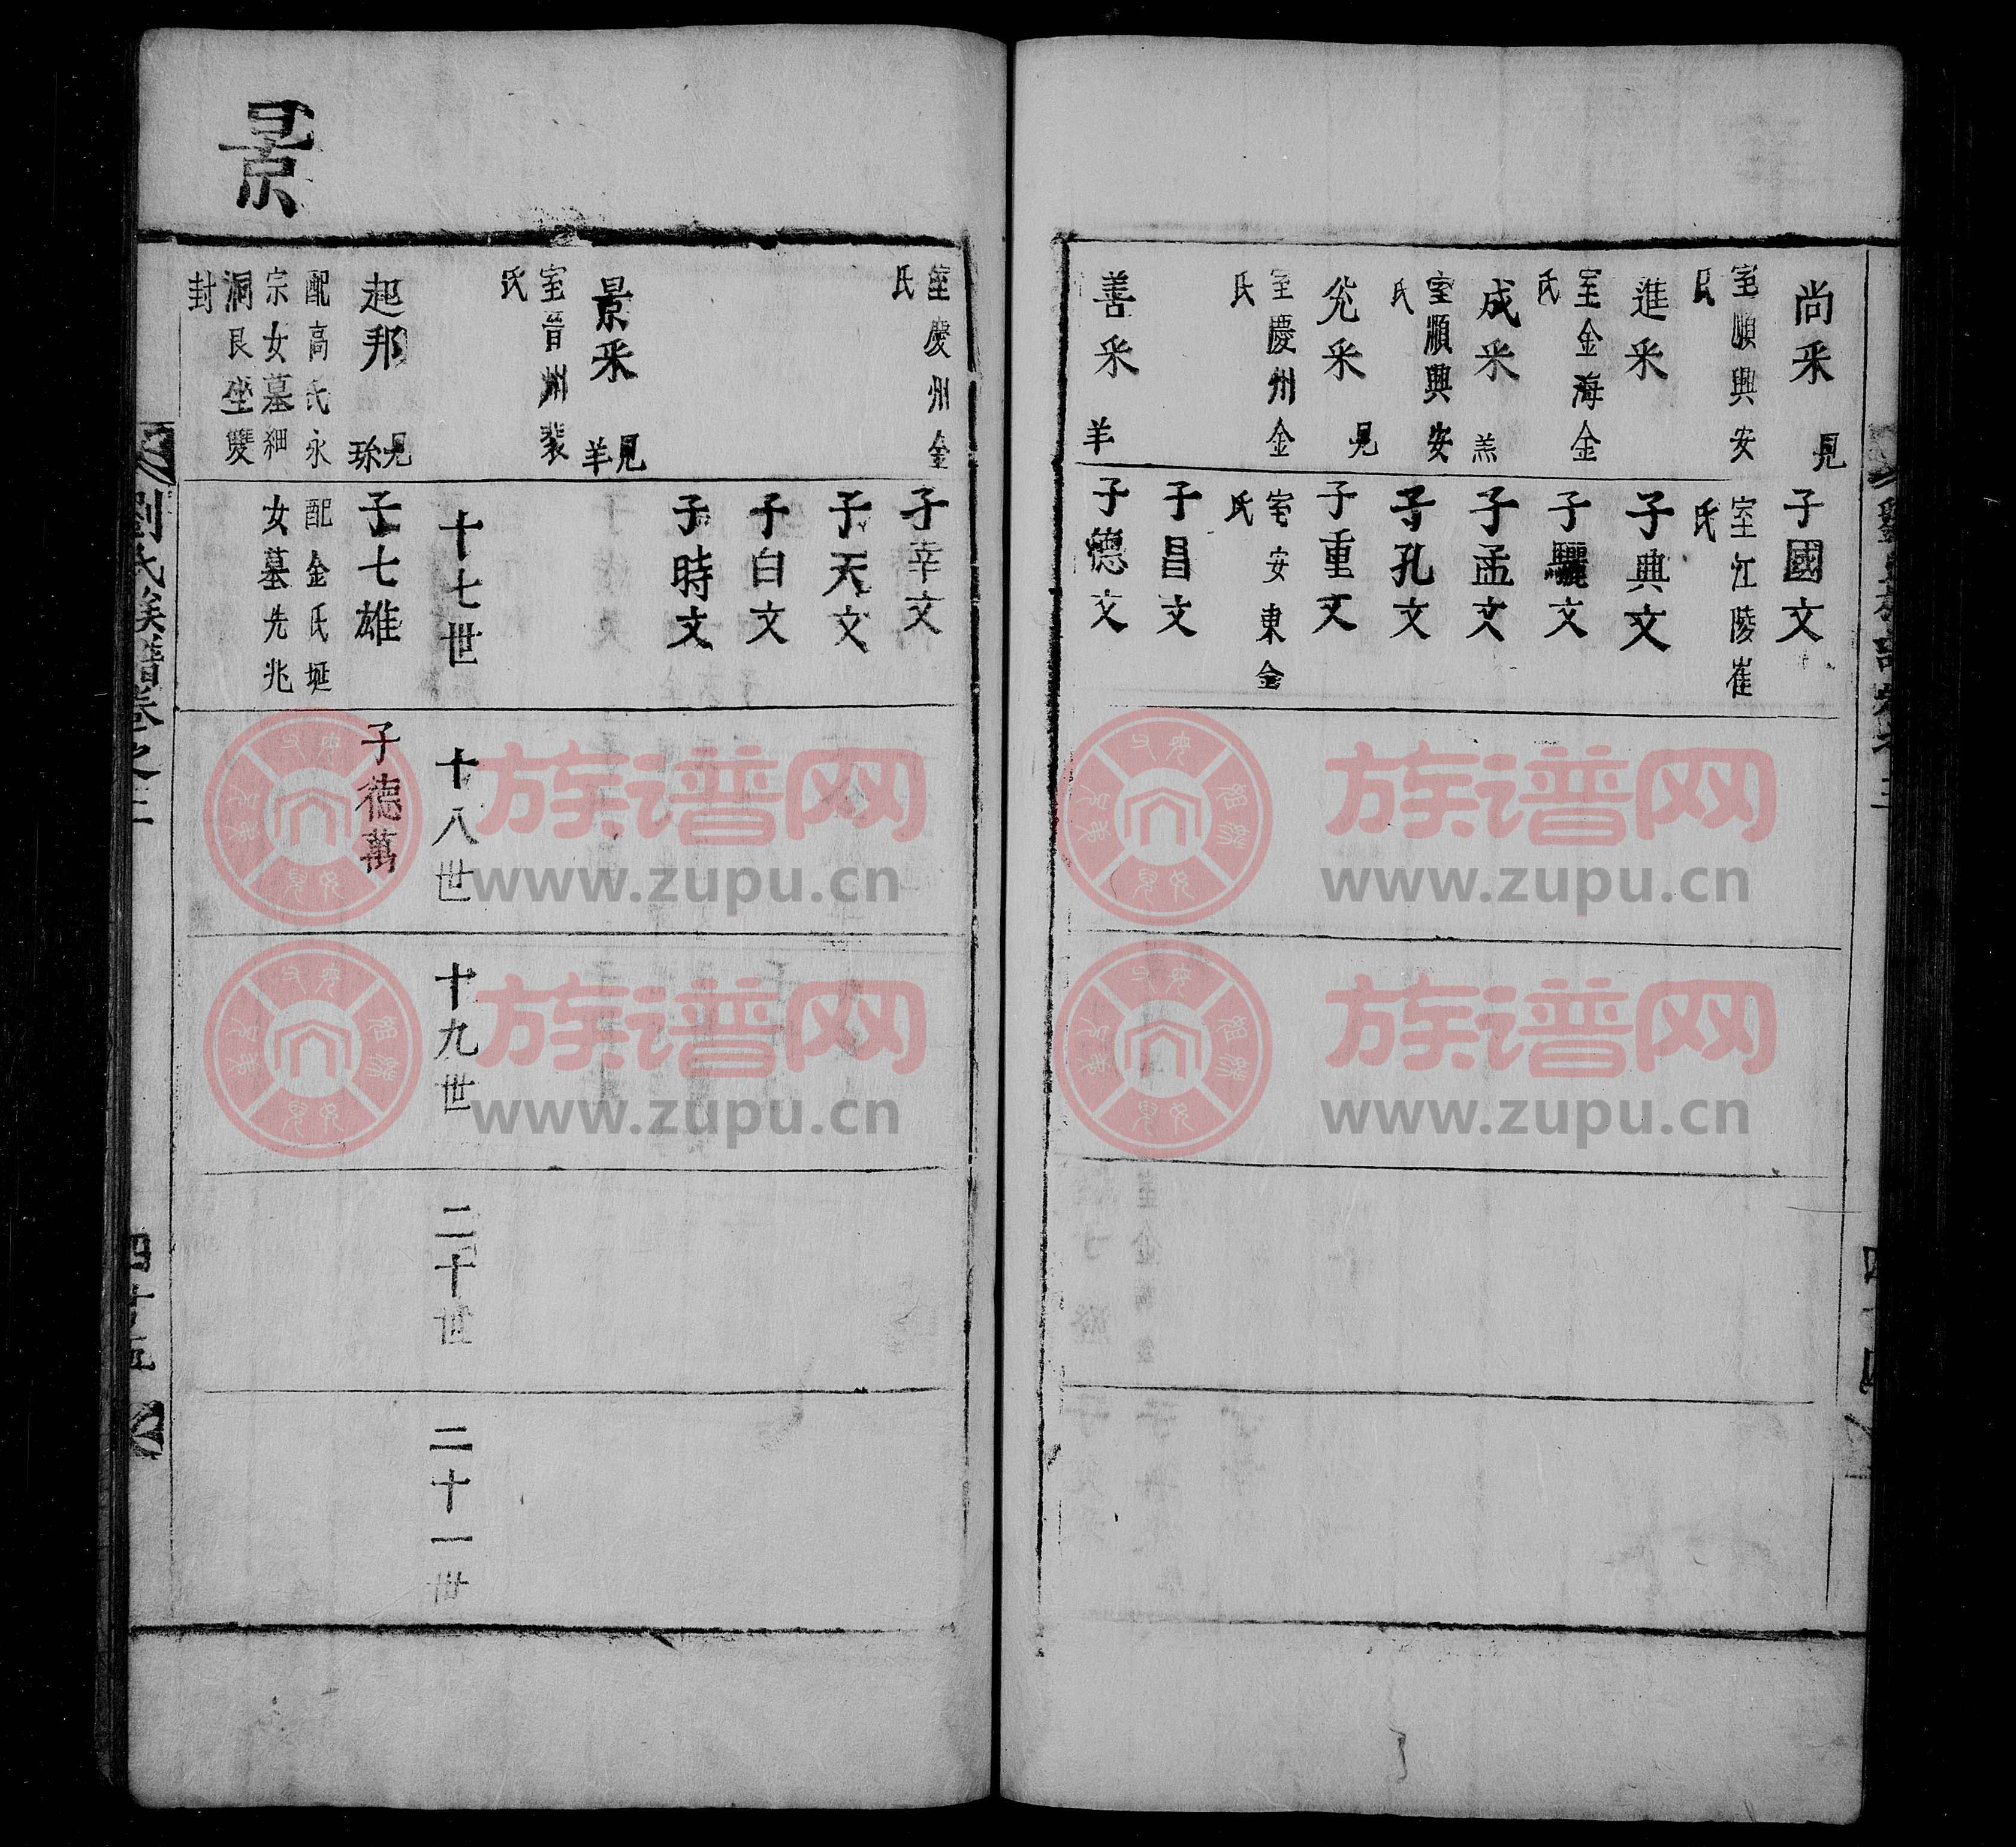 尚采 見
室順興安
氏
進采
室金海金
氏
成采 羔
室順興安
氏
見
室慶州金
氏
善采 羊
子國文
室江陵崔
氏
子典文
子驪文
子孟文
子孔文
子重文
室安東金
氏
子昌文
子德文
室慶州金
氏
景采 見羊
室晉州裴
氏
起邦 見
配高氏永
宗女墓細
洞艮坐雙
封
子幸文
子天文
子白文
子時文
十七世
子七雄
配金氏埏
女墓先兆
十八世
子德萬
十九世
二十世
二十一世
景
劉氏族譜卷之三
四十五
四十四
族谱网
www.zupu.cn
族谱网
www.zupu.cn
族谱网
www.zupu.cn
族谱网
www.zupu.cn